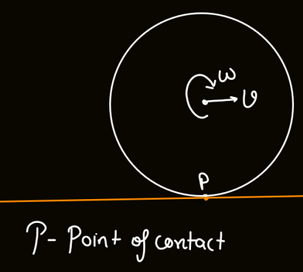 ω
v
P
P- Point of contact